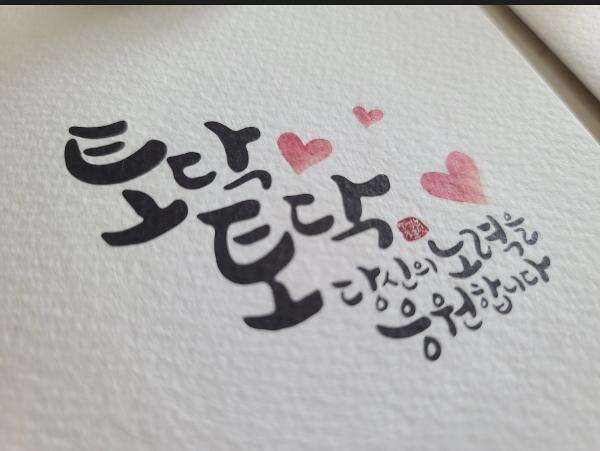 토닥
토닥
당신의 노력을
응원합니다